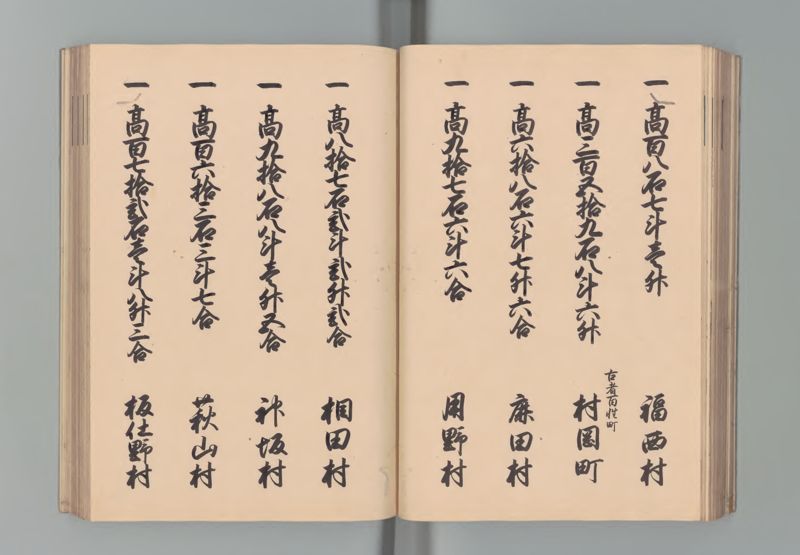 一 高百八石七斗壱升 福西村
一 高三百五拾九石八斗六升 村岡町
古者百姓町
一 高六拾八石六斗七升六合 庿田村
一 高九拾七石六斗六合 用野村
一 高八拾七石弐斗弐升弐合 相田村
一 高九拾八石八斗壱升五合 神坂村
一 高百六拾三石三斗七合 萩山村
一 高百七拾弐石壱斗八升三合 板仕野村